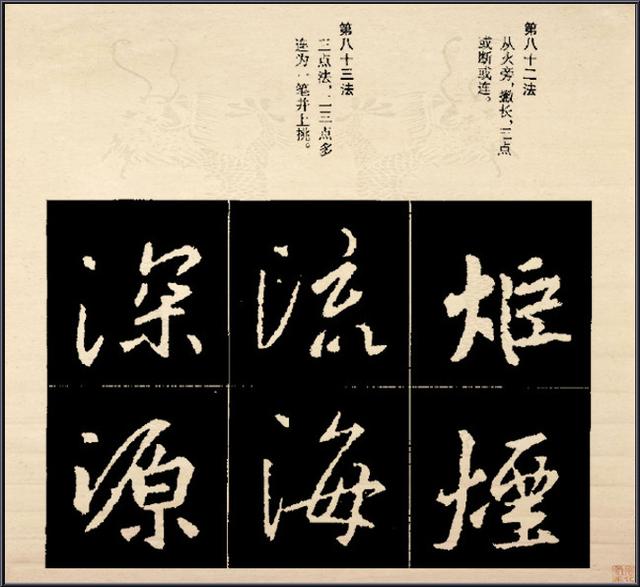 第八十二法
从火旁，撇长，三点
或断或连。
炬
煙
第八十三法
三点法，二三点多
连为一笔并上挑。
流
海
深
源